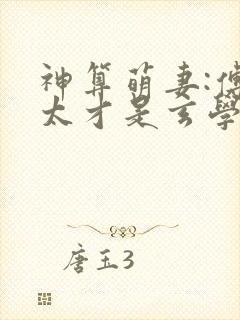 神算萌妻:傅
太才是玄學
唐玉3